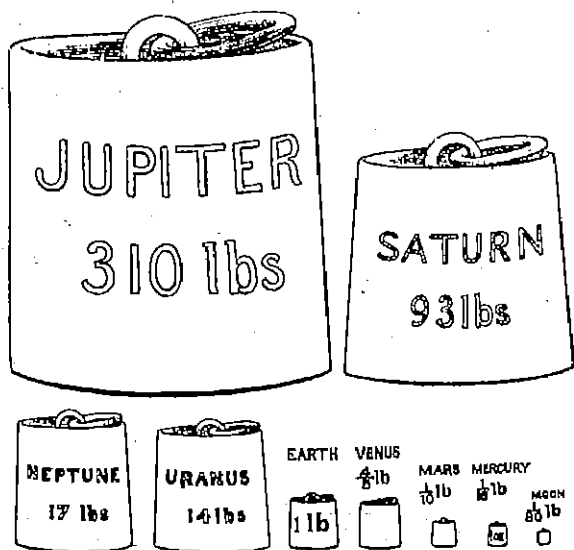 JUPITER
310 lbs
SATURN
93 lbs
NEPTUNE
17 lbs
URANUS
14 lbs
EARTH
1 lb
VENUS
⅘ lb
MARS
1/10 lb
MERCURY
MOON
1/80 lb